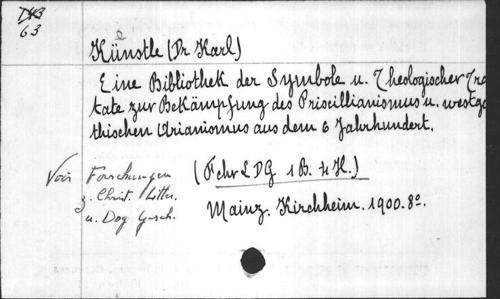 63
Künstle (Dr Karl)
Eine Bibliothek der Symbole u. Theologischer Tra
ktate zur Bekämpfung des Priscillianismus u. westgo
thischen Arianismus aus dem 6 Jahrhundert.
Voir Forschungen
z. Christ. Litter.
u. Dog Gesch.
(Fchr L D G 1 B. 4 H.)
Mainz. Kirchheim. 1900. 8º.